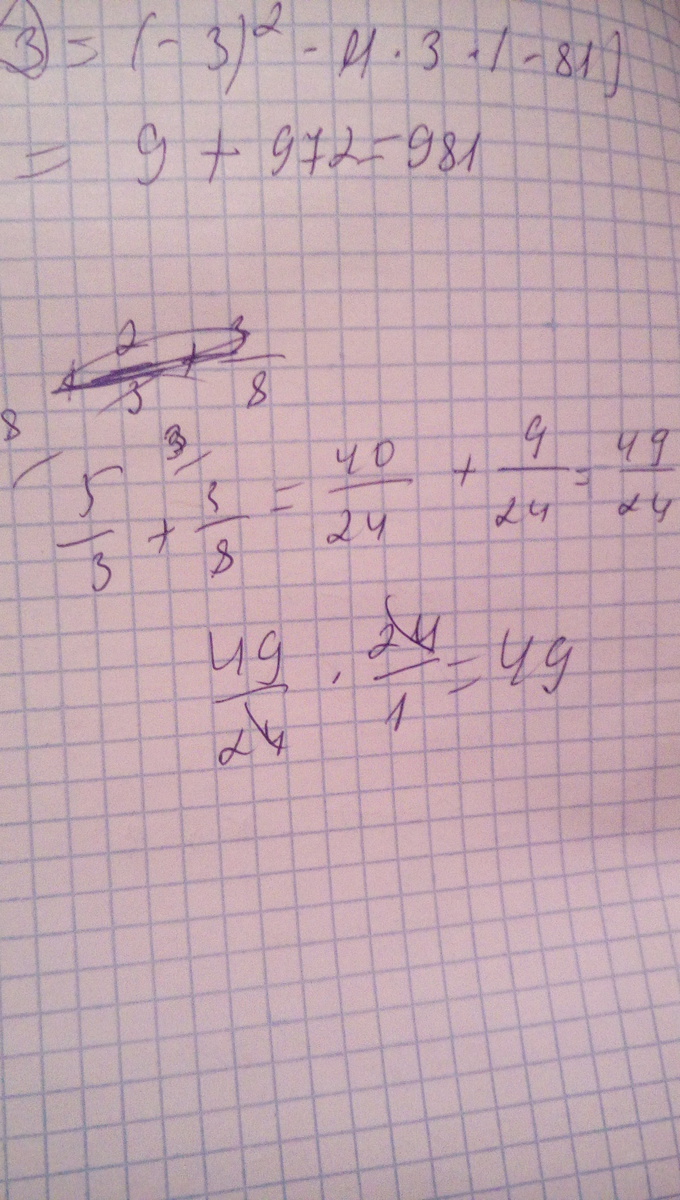 3) = (-3)² - 4 · 3 · (-81)
= 9 + 972 = 981
8 3
5/3 + 3/8 = 40/24 + 9/24 = 49/24
49/24 · 24/1 = 49